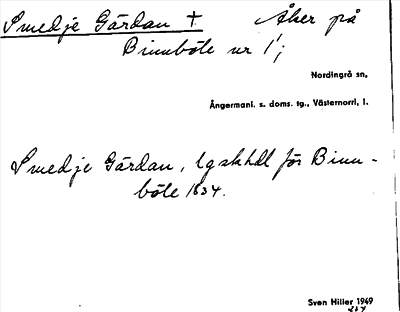 Smedje Gärdan + Åker på
Binnböle nr 1;
Nordingrå sn,
Ångermanl. s. doms. tg., Västernorrl, l.
Smedje Gärdan, lgskhdl för Binn-
böle 1834.
Sven Hiller 1949